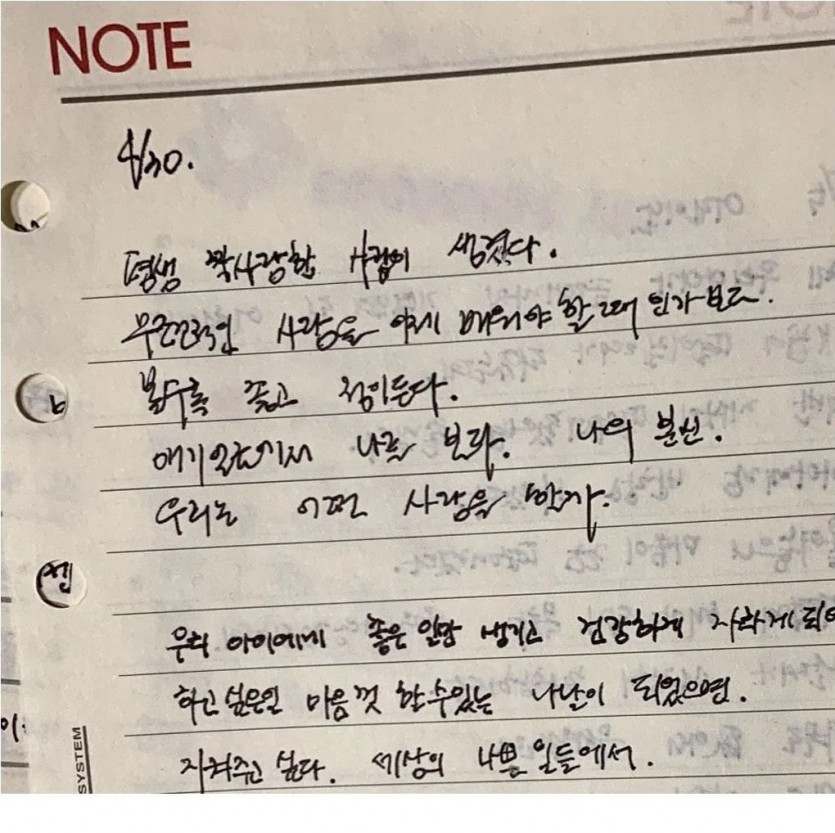 NOTE
4/30.
평생 짝사랑할 사람이 생겼다.
무조건적인 사랑을 이제 배워야 할 때 인가보다.
볼수록 좋고 정이든다.
애기 얼굴에서 나를 보다. 나의 분신.
우리는 어떤 사랑을 할까.
우리 아이에게 좋은 일만 생기고 건강하게 자라게 되어
하고싶은일 마음껏 할 수 있는 나날이 되었으면.
지켜주고 싶다. 세상의 나쁜 일들에서.
SYSTEM